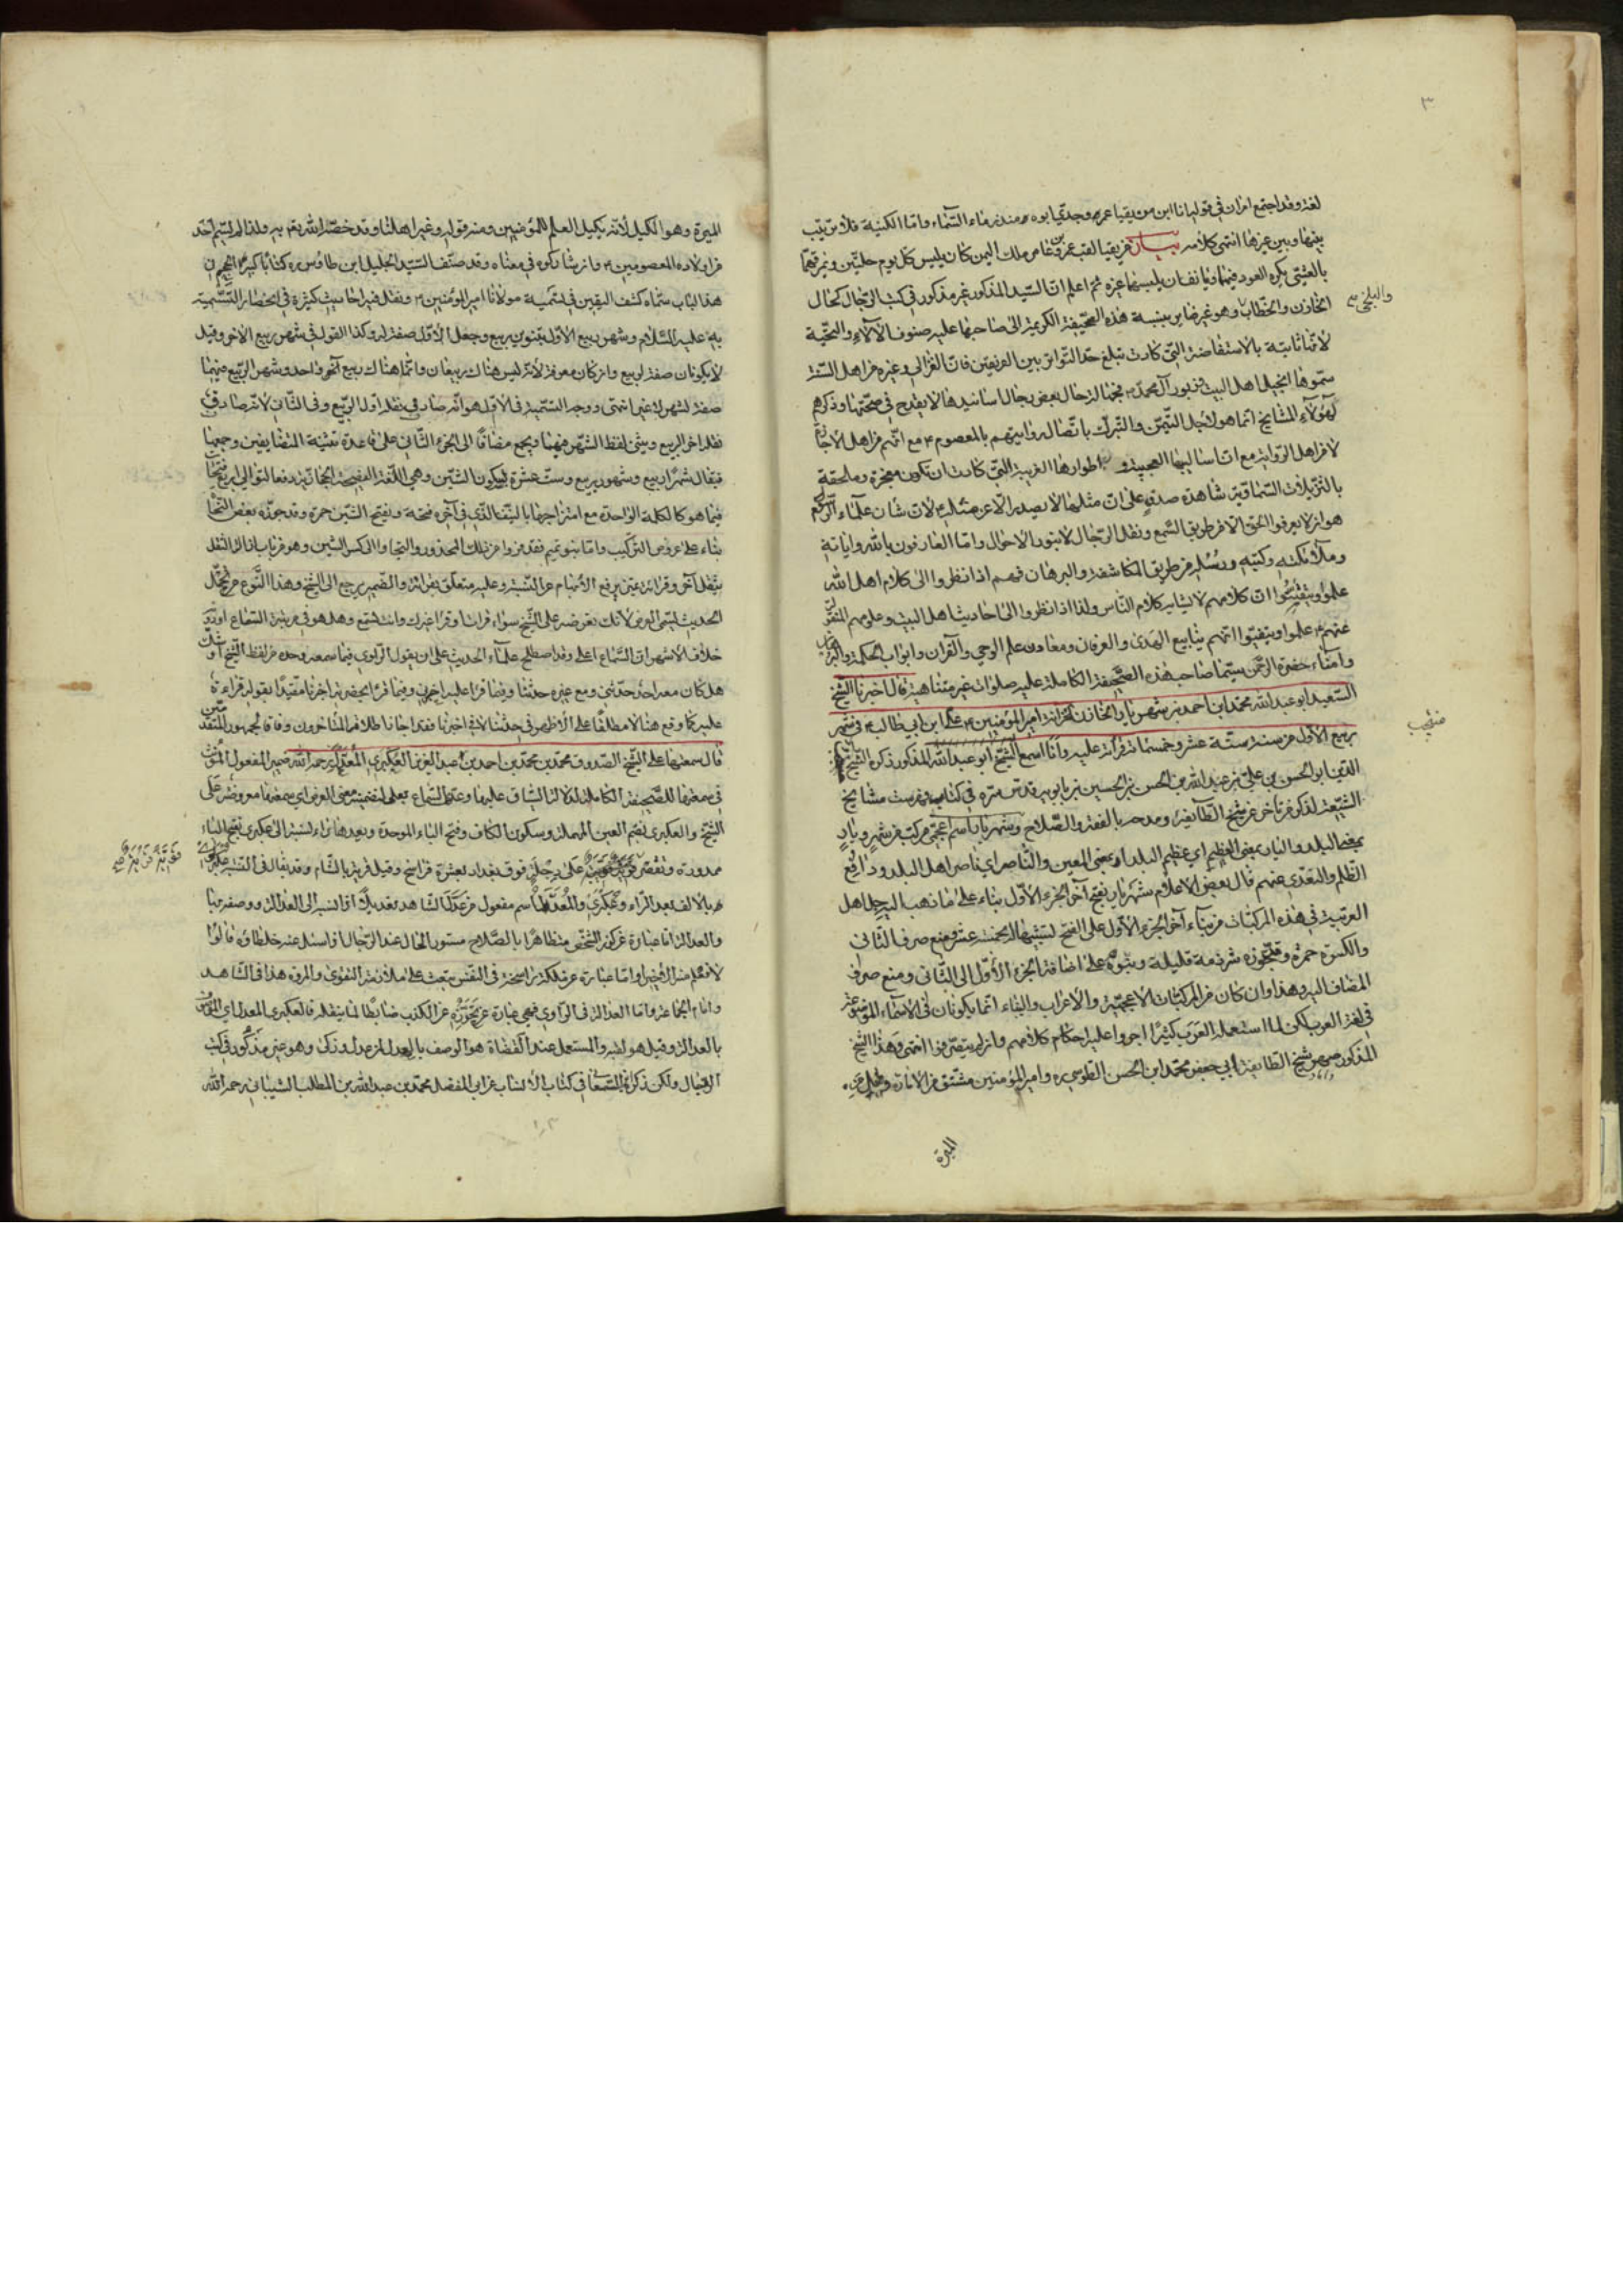 ٣
لغة وقد اجتمع امران في قوله انا ابن مزيقيا عمرو وجدي ابوه منذر ماء السماء واما الكنية فلا ترتيب
بينها وبين غيرها انتهى كلامه بيان مزيقيا لقب عمرو بن عامر ملك اليمن كان يلبس كل يوم حلتين ويمزقهما
بالعشي يكره العود فيهما ويانف ان يلبسهما غيره ثم اعلم ان السيد المذكور غير مذكور في كتب الرجال كحال
والبلخي
الخازن والخطاب وهو غير ضاير بنسبة هذه الصحيفة الكريمة الى صاحبها عليه صنوف الآلاء والتحية
لانها ثابتة بالاستفاضة التي كادت تبلغ حد التواتر بين الفريقين فان الغزالي وغيره من اهل السنة
سموها انجيل اهل البيت وزبور آل محمد فجهالة حال بعض رجال اسانيدها لا يقدح في صحتها وذكرهم
لهؤلاء المشايخ انما هو لاجل التيمن والتبرك باتصال روايتهم بالمعصوم مع انهم من اهل الاجازة
لا من اهل الرواية مع ان اساليبها العجيبة و اطوارها الغريبة التي كادت ان تكون معجزة وملحقة
بالتنزيلات السماوية شاهدة صدق على ان مثلها لا يصدر الا عن مثله لان شان علماء
هو ان لا يعرفوا الحق الا من طريق السمع ونقل الرجال لا بنور الاحوال واما العارفون بالله واياته
وملائكته وكتبه ورسله من طريق المكاشفة والبرهان فهم اذا نظروا الى كلام اهل الله
علموا وتيقنوا ان كلامهم لا يشابه كلام الناس ولذا اذا نظروا الى احاديث اهل البيت وعلومهم
عنهم علموا وتيقنوا انهم ينابيع الهدى والعرفان ومعادن علم الوحي والقرآن وابواب الحكمة
وامناء حضرة الرحمن سيما صاحب هذه الصحيفة الكاملة عليه صلوات غير متناهية قال اخبرنا الشيخ
السعيد ابو عبد الله محمد ابن احمد بن شهريار الخازن لخزانة امير المؤمنين علي ابن ابي طالب في شهر
ربيع الاول من سنة ستة عشر وخمسمائة قراءة عليه وانا اسمع الشيخ ابو عبد الله المذكور ذكره الشيخ
منتجب
الدين ابو الحسن بن علي بن عبيد الله بن الحسن بن الحسين بن بابويه قدس سره في كتاب فهرست مشايخ
الشيعة لذكر من تاخر عن شيخ الطائفة ومدحه بالفقه والصلاح وشهريار اسم عجمي مركب من شهر ويار
بمعنى البلد واليار بمعنى العظيم اي عظيم البلد او بمعنى المعين والناصر اي ناصر اهل البلد ودافع
الظلم والتعدي عنهم قال بعض الاعلام شهريار بفتح آخر الجزء الاول بناء على ما ذهب اليه جل اهل
العربية في هذه المركبات من بناء آخر الجزء الاول على الفتح لتشبيهها بخمسة عشر ومنع صرف الثاني
والكسرة جره وقد جوزه شرذمة قليلة وبنوه على اضافة الجزء الاول الى الثاني ومنع صرف
المضاف اليه وهذا وان كان من المركبات الاعجمية والاعراب والبناء انما يكونان في الاسماء
في لغة العرب لكن لما استعمله العرب كثيرا اجروا عليه احكام كلامهم وان لم يتصرفوا انتهى وهذا الشيخ
المذكور صهر شيخ الطائفة ابي جعفر محمد ابن الحسن الطوسي ره وامير المؤمنين مشتق من الامارة
الميرة
الميرة وهو الكيل لانه يكيل العلم للمؤمنين ومنه قوله ونمير اهلنا وقد خصه الله تعالى به ولذا لم يتسم احد
من اولاده المعصومين وان شاركوه في معناه وقد صنف السيد الجليل ابن طاوس ره كتابا كبيرا
هذا الباب سماه كشف اليقين في تسمية مولانا امير المؤمنين ونقل فيه احاديث كثيرة في انحصار التسمية
به عليه السلام وشهر ربيع الاول بتنوين ربيع وجعل الاول صفة له وكذا القول في شهر ربيع الآخر وقيل
لا يكونان صفة لربيع وان كان معرفة لانه ليس هناك ربيعان وانما هناك ربيع آخر واحد وشهر الربيع فيهما
صفة لشهر لا غير انتهى ووجه التسمية في الاول هو انه صادف نقله اول الربيع وفي الثاني لانه صادف
نقله اخر الربيع ويثنى لفظ الشهر فيهما ويجمع مضافا الى الجزء الثاني على قاعدة تثنية المتضايفين وجمعهما
فيقال شهرا ربيع وشهور ربيع وست عشرة بسكون الشين وهي اللغة الفصيحة الحجازية دفعا لتوالي اربع فتحات
فيما هو كالكلمة الواحدة مع امتزاجها بالنيف الذي في آخره فتحة وبفتح الشين جره وقد جوزه بعض النحاة
بناء على عروض التركيب واما بنو تميم فقد فروا من تلك المحذور والتجاوا الى كسر الشين وهو فرار بازالة النقل
بنقل آخر وقراءة تمييز يرفع الابهام عن النسبة وعليه متعلق بقراءة والضمير يرجع الى الشيخ وهذا النوع من تحمل
الحديث يسمى العرض لانك تعرضه على الشيخ سواء قرات او قرا غيرك وانت تسمع وهل هو في مرتبة السماع او
خلاف الاشهر ان السماع اعلى وقد اصطلح علماء الحديث على ان يقول الراوي فيما سمعه وحده من لفظ الشيخ او شك
هل كان معه احد حدثني ومع غيره حدثنا وفيما قرا عليه اخبرني وفيما قرئ بحضرته اخبرنا مقيدا بقوله قراءة
عليه كما وقع هنا لا مطلقا على الاظهر في حدثنا لا في اخبرنا فقد اجاز اطلاقه المتاخرون وفاقا لجمهور المتقدمين
قال سمعتها على الشيخ الصدوق محمد بن محمد بن احمد بن عبد العزيز العكبري المعدل رحمه الله ضمير المفعول المؤنث
في سمعتها للصحيفة الكاملة لدلالة السياق عليها وعدى السماع بعلى لتضمينه معنى العرض اي سمعتها معروضة على
الشيخ والعكبري بضم العين المهملة وسكون الكاف وفتح الباء الموحدة وبعدها راء نسبة الى عكبرى بفتح الباء
ممدودة وتقصر على دجلة فوق بغداد بعشرة فراسخ وقيل قرية بالشام وقد يقال في النسبة
بالالف بعد الراء وعكبري والمعدل اسم مفعول من عدل الشاهد تعديلا اذا نسبه الى العدالة ووصفه بها
والعدالة اما عبارة عن كون الشخص متظاهرا بالصلاح مستور الحال عند الرجال اذا سئل عنه خلطاؤه قالوا
لا نعلم منه الا خيرا واما عبارة عن ملكة راسخة في النفس تبعث على ملازمة التقوى والمروة هذا في الشاهد
وامام الجماعة واما العدالة في الراوي فهي عبارة عن تحرزه عن الكذب ضابطا لما ينقله فالعكبري المعدل اي الموثق
بالعدالة وقيل هو لقبه والمستعمل عند القضاة هو الوصف بالعدل لا المعدل وزكى وهو غير مذكور في كتب
الرجال ولكن ذكره السمعاني في كتاب الانساب عن ابي المفضل محمد بن عبد الله بن المطلب الشيباني رحمه الله